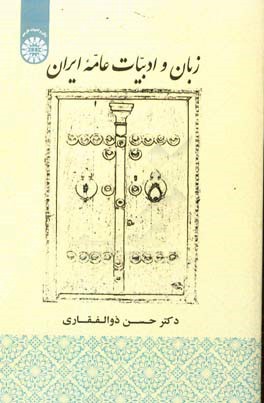 زبان و ادبیّات عامّهٔ ایران
دکتر حسن ذوالفقاری